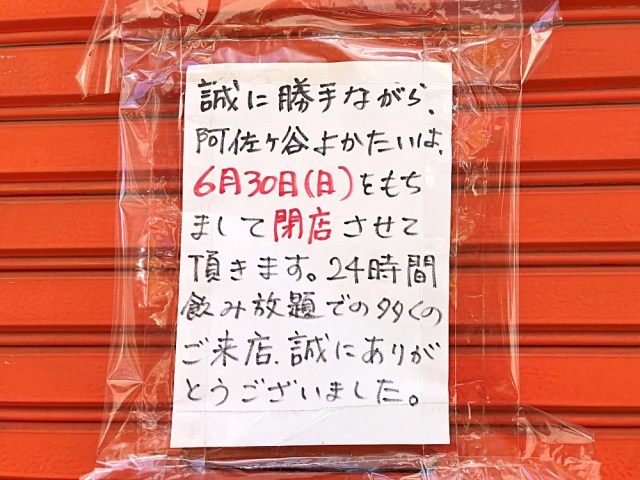 誠に勝手ながら、
阿佐ヶ谷よかたいは、
6月30日(日)をもち
まして閉店させて
頂きます。24時間
飲み放題での多くの
ご来店、誠にありが
とうございました。